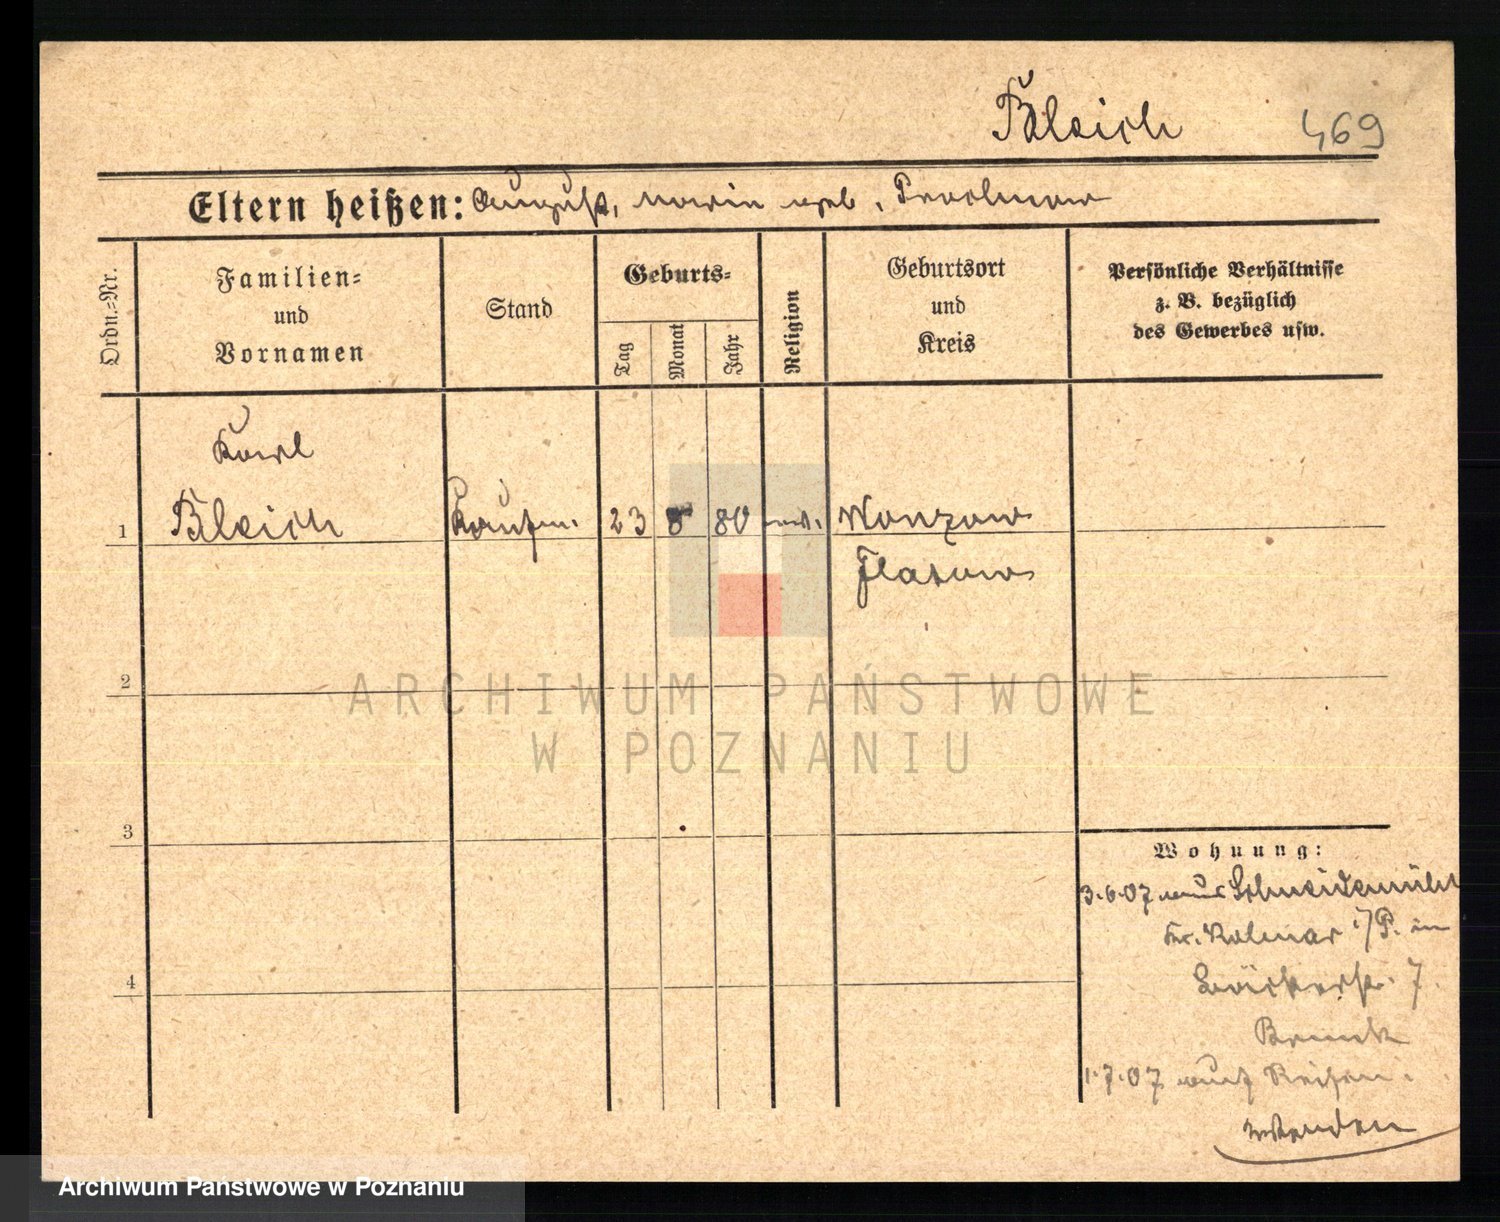 Bleich
469
Eltern heißen: August, Marie geb.
Ordn.-Nr.
Familien-
und
Vornamen
Stand
Geburts-
Tag
Monat
Jahr
Religion
Geburtsort
und
Kreis
Persönliche Verhältnisse
z. B. bezüglich
des Gewerbes usw.
Karl
1 Bleich Kaufm. 23 8 80 Wonzow
Flatow
2
3
4
Wohnung:
3.6.07 aus Schneidemühl
Kr. Kolmar i/P. in
Bäckerstr. 7.
1.7.07 auf Reisen.
ARCHIWUM PAŃSTWOWE
W POZNANIU
Archiwum Państwowe w Poznaniu